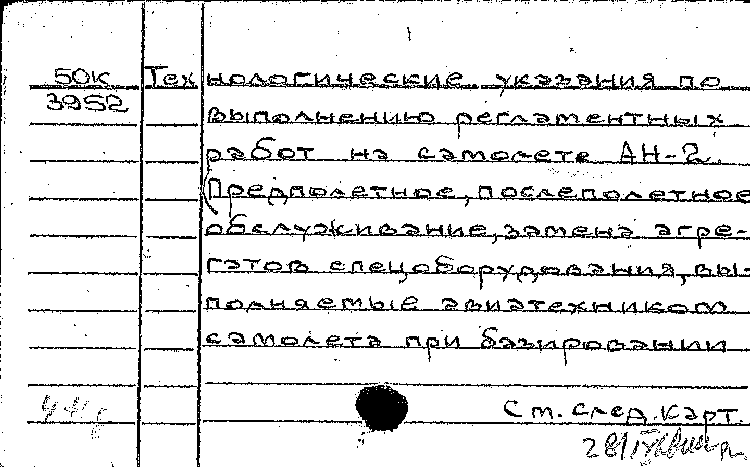 50К Технологические указания по
3952
выполнению регламентных
работ на самолете АН-2.
(Предполетное, послеполетное
обслуживание, замена агре-
гатов спецоборудования, вы-
полняемые авиатехником
самолета при базировании
См. след. карт.
28/IX